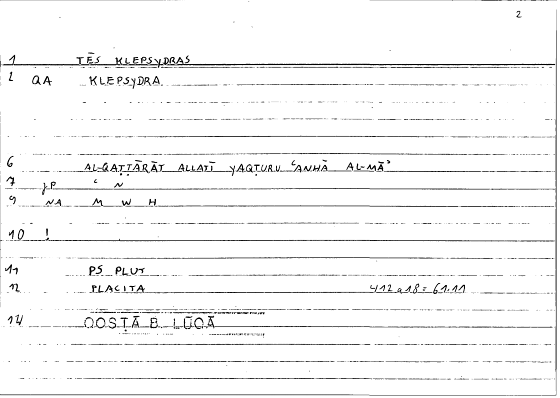 2
1 TĒS KLEPSYDRAS
2 QA KLEPSYDRA
6 AL-QAṬṬĀRĀT ALLATĪ YAQṬURU ʿANHĀ AL-MĀʾ
7 JP ʿ N
9 NA M W H
10 !
11 PS PLUT
12 PLACITA 412a18 = 61.11
14 QOSṬĀ B. LŪQĀ